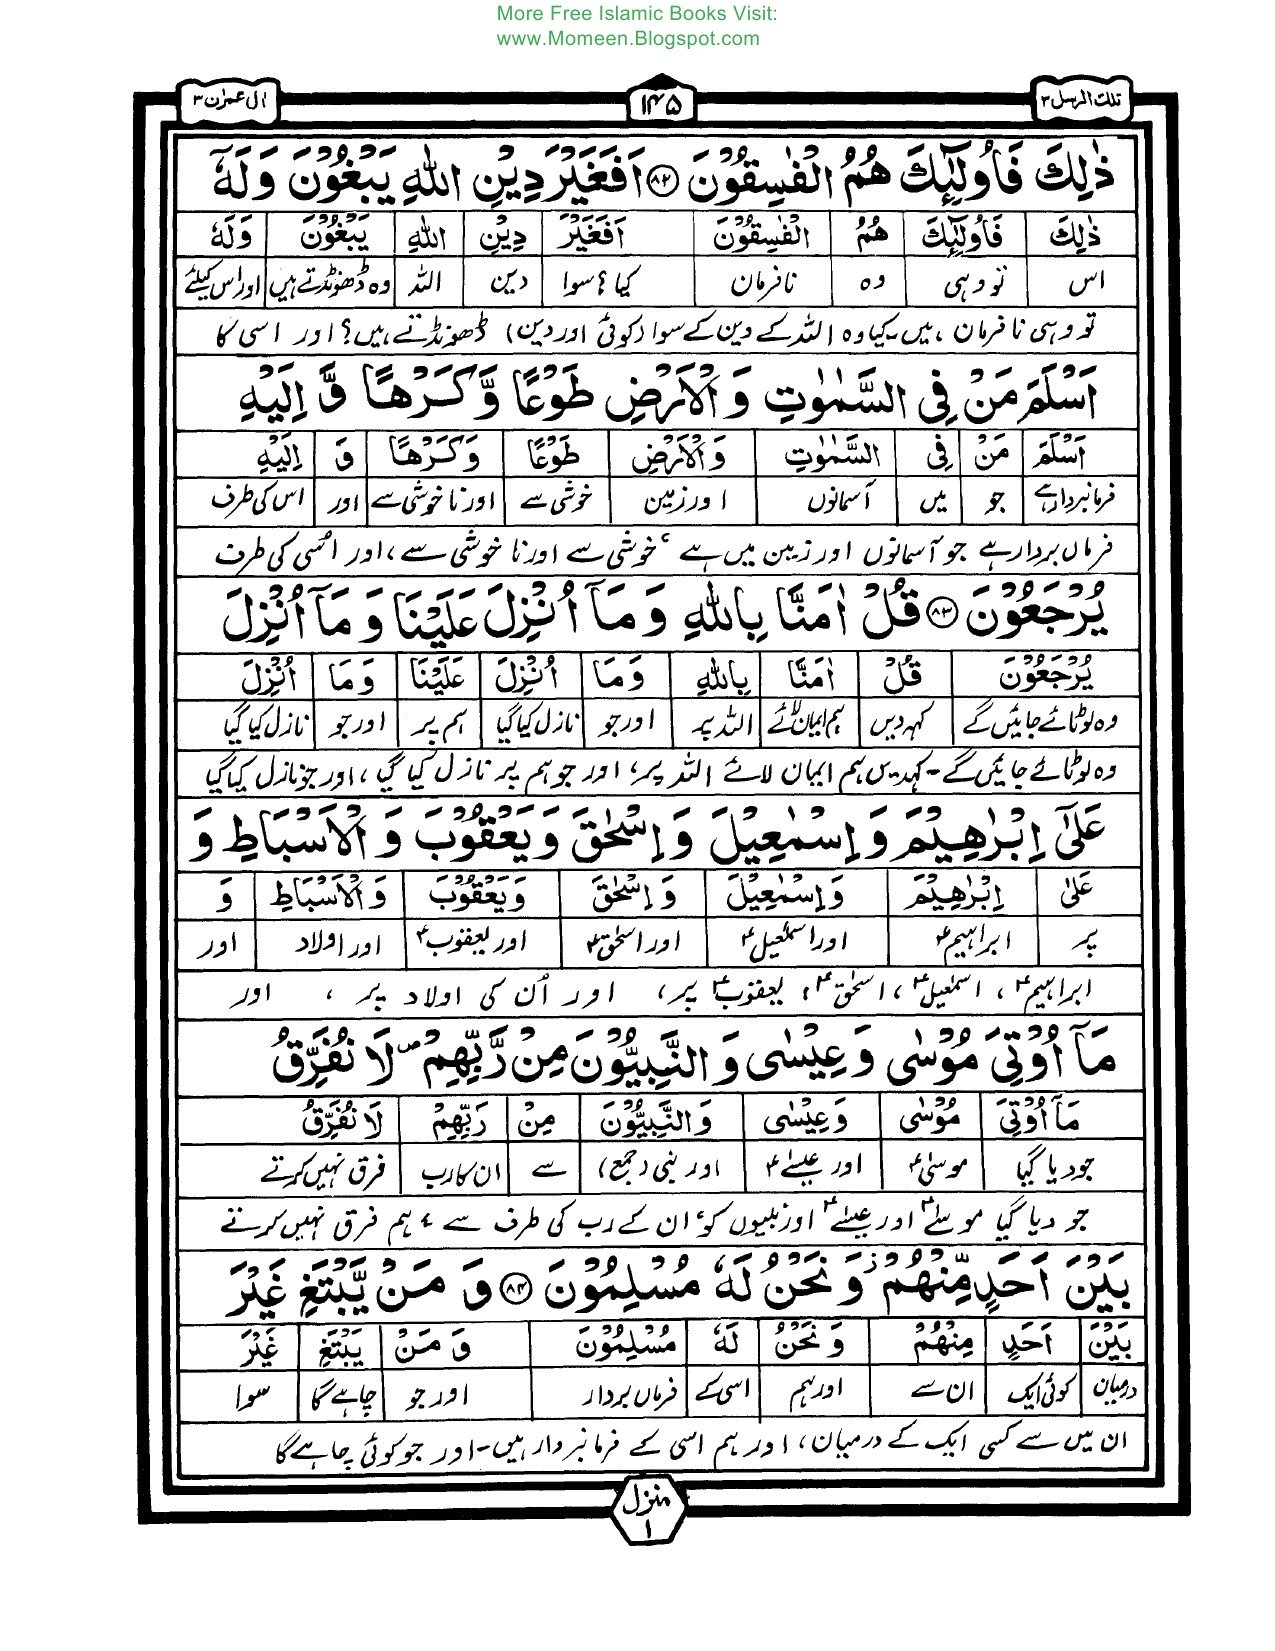 More Free Islamic Books Visit:
www.Momeen.Blogspot.com
تلك الرسل ۳
۱۴۵
اٰل عمرٰن ۳
ذٰلِكَ فَاُولٰٓئِكَ هُمُ الْفٰسِقُوْنَ ﴿۸۲﴾ اَفَغَيْرَ دِيْنِ اللّٰهِ يَبْغُوْنَ وَلَهٗٓ
ذٰلِكَ فَاُولٰٓئِكَ هُمُ الْفٰسِقُوْنَ اَفَغَيْرَ دِيْنِ اللّٰهِ يَبْغُوْنَ وَلَهٗ
اس تو وہی وہ نافرمان کیا؟ سوا دین اللہ وہ ڈھونڈتے ہیں اور اس کیلئے
تو وہی نافرمان ہیں۔ کیا وہ اللہ کے دین کے سوا (کوئی اور دین) ڈھونڈتے ہیں؟ اور اسی کا
اَسْلَمَ مَنْ فِى السَّمٰوٰتِ وَالْاَرْضِ طَوْعًا وَّكَرْهًا وَّ اِلَيْهِ
اَسْلَمَ مَنْ فِى السَّمٰوٰتِ وَالْاَرْضِ طَوْعًا وَكَرْهًا وَ اِلَيْهِ
فرمانبردار ہے جو میں آسمانوں اور زمین خوشی سے اور ناخوشی سے اور اس کی طرف
فرماں بردار ہے جو آسمانوں اور زمین میں ہے، خوشی سے اور ناخوشی سے، اور اُسی کی طرف
يُرْجَعُوْنَ ﴿۸۳﴾ قُلْ اٰمَنَّا بِاللّٰهِ وَمَآ اُنْزِلَ عَلَيْنَا وَمَآ اُنْزِلَ
يُرْجَعُوْنَ قُلْ اٰمَنَّا بِاللّٰهِ وَمَا اُنْزِلَ عَلَيْنَا وَمَا اُنْزِلَ
وہ لوٹائے جائیں گے کہہ دیں ہم ایمان لائے اللہ پر اور جو نازل کیا گیا ہم پر اور جو نازل کیا گیا
وہ لوٹائے جائیں گے۔ کہدیں ہم ایمان لائے اللہ پر، اور جو ہم پر نازل کیا گیا، اور جو نازل کیا گیا
عَلٰٓى اِبْرٰهِيْمَ وَاِسْمٰعِيْلَ وَاِسْحٰقَ وَيَعْقُوْبَ وَالْاَسْبَاطِ وَ
عَلٰى اِبْرٰهِيْمَ وَاِسْمٰعِيْلَ وَاِسْحٰقَ وَيَعْقُوْبَ وَالْاَسْبَاطِ وَ
پر ابراہیمؑ اور اسمٰعیلؑ اور اسحٰقؑ اور یعقوبؑ اور اولاد اور
ابراہیمؑ، اسمٰعیلؑ، اسحٰقؑ، یعقوبؑ پر، اور اُن کی اولاد پر، اور
مَآ اُوْتِىَ مُوْسٰى وَعِيْسٰى وَالنَّبِيُّوْنَ مِنْ رَّبِّهِمْ ص لَا نُفَرِّقُ
مَآ اُوْتِىَ مُوْسٰى وَعِيْسٰى وَالنَّبِيُّوْنَ مِنْ رَبِّهِمْ لَا نُفَرِّقُ
جو دیا گیا موسیٰؑ اور عیسےٰؑ اور نبی (جمع) سے ان کا رب فرق نہیں کرتے
جو دیا گیا موسےٰؑ اور عیسےٰؑ اور نبیوں کو، ان کے رب کی طرف سے، ہم فرق نہیں کرتے
بَيْنَ اَحَدٍ مِّنْهُمْ ز وَنَحْنُ لَهٗ مُسْلِمُوْنَ ﴿۸۴﴾ وَمَنْ يَّبْتَغِ غَيْرَ
بَيْنَ اَحَدٍ مِنْهُمْ وَنَحْنُ لَهٗ مُسْلِمُوْنَ وَمَنْ يَبْتَغِ غَيْرَ
درمیان کوئی ایک ان سے اور ہم اسی کے فرماں بردار اور جو چاہے گا سوا
ان میں سے کسی ایک کے درمیان، اور ہم اسی کے فرمانبردار ہیں۔ اور جو کوئی چاہے گا
منزل
۱